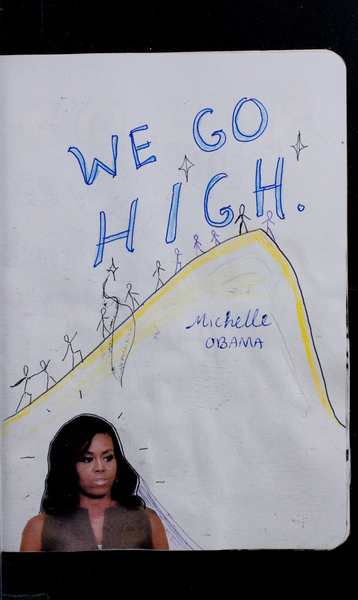 WE GO
HIGH.
Michelle
OBAMA